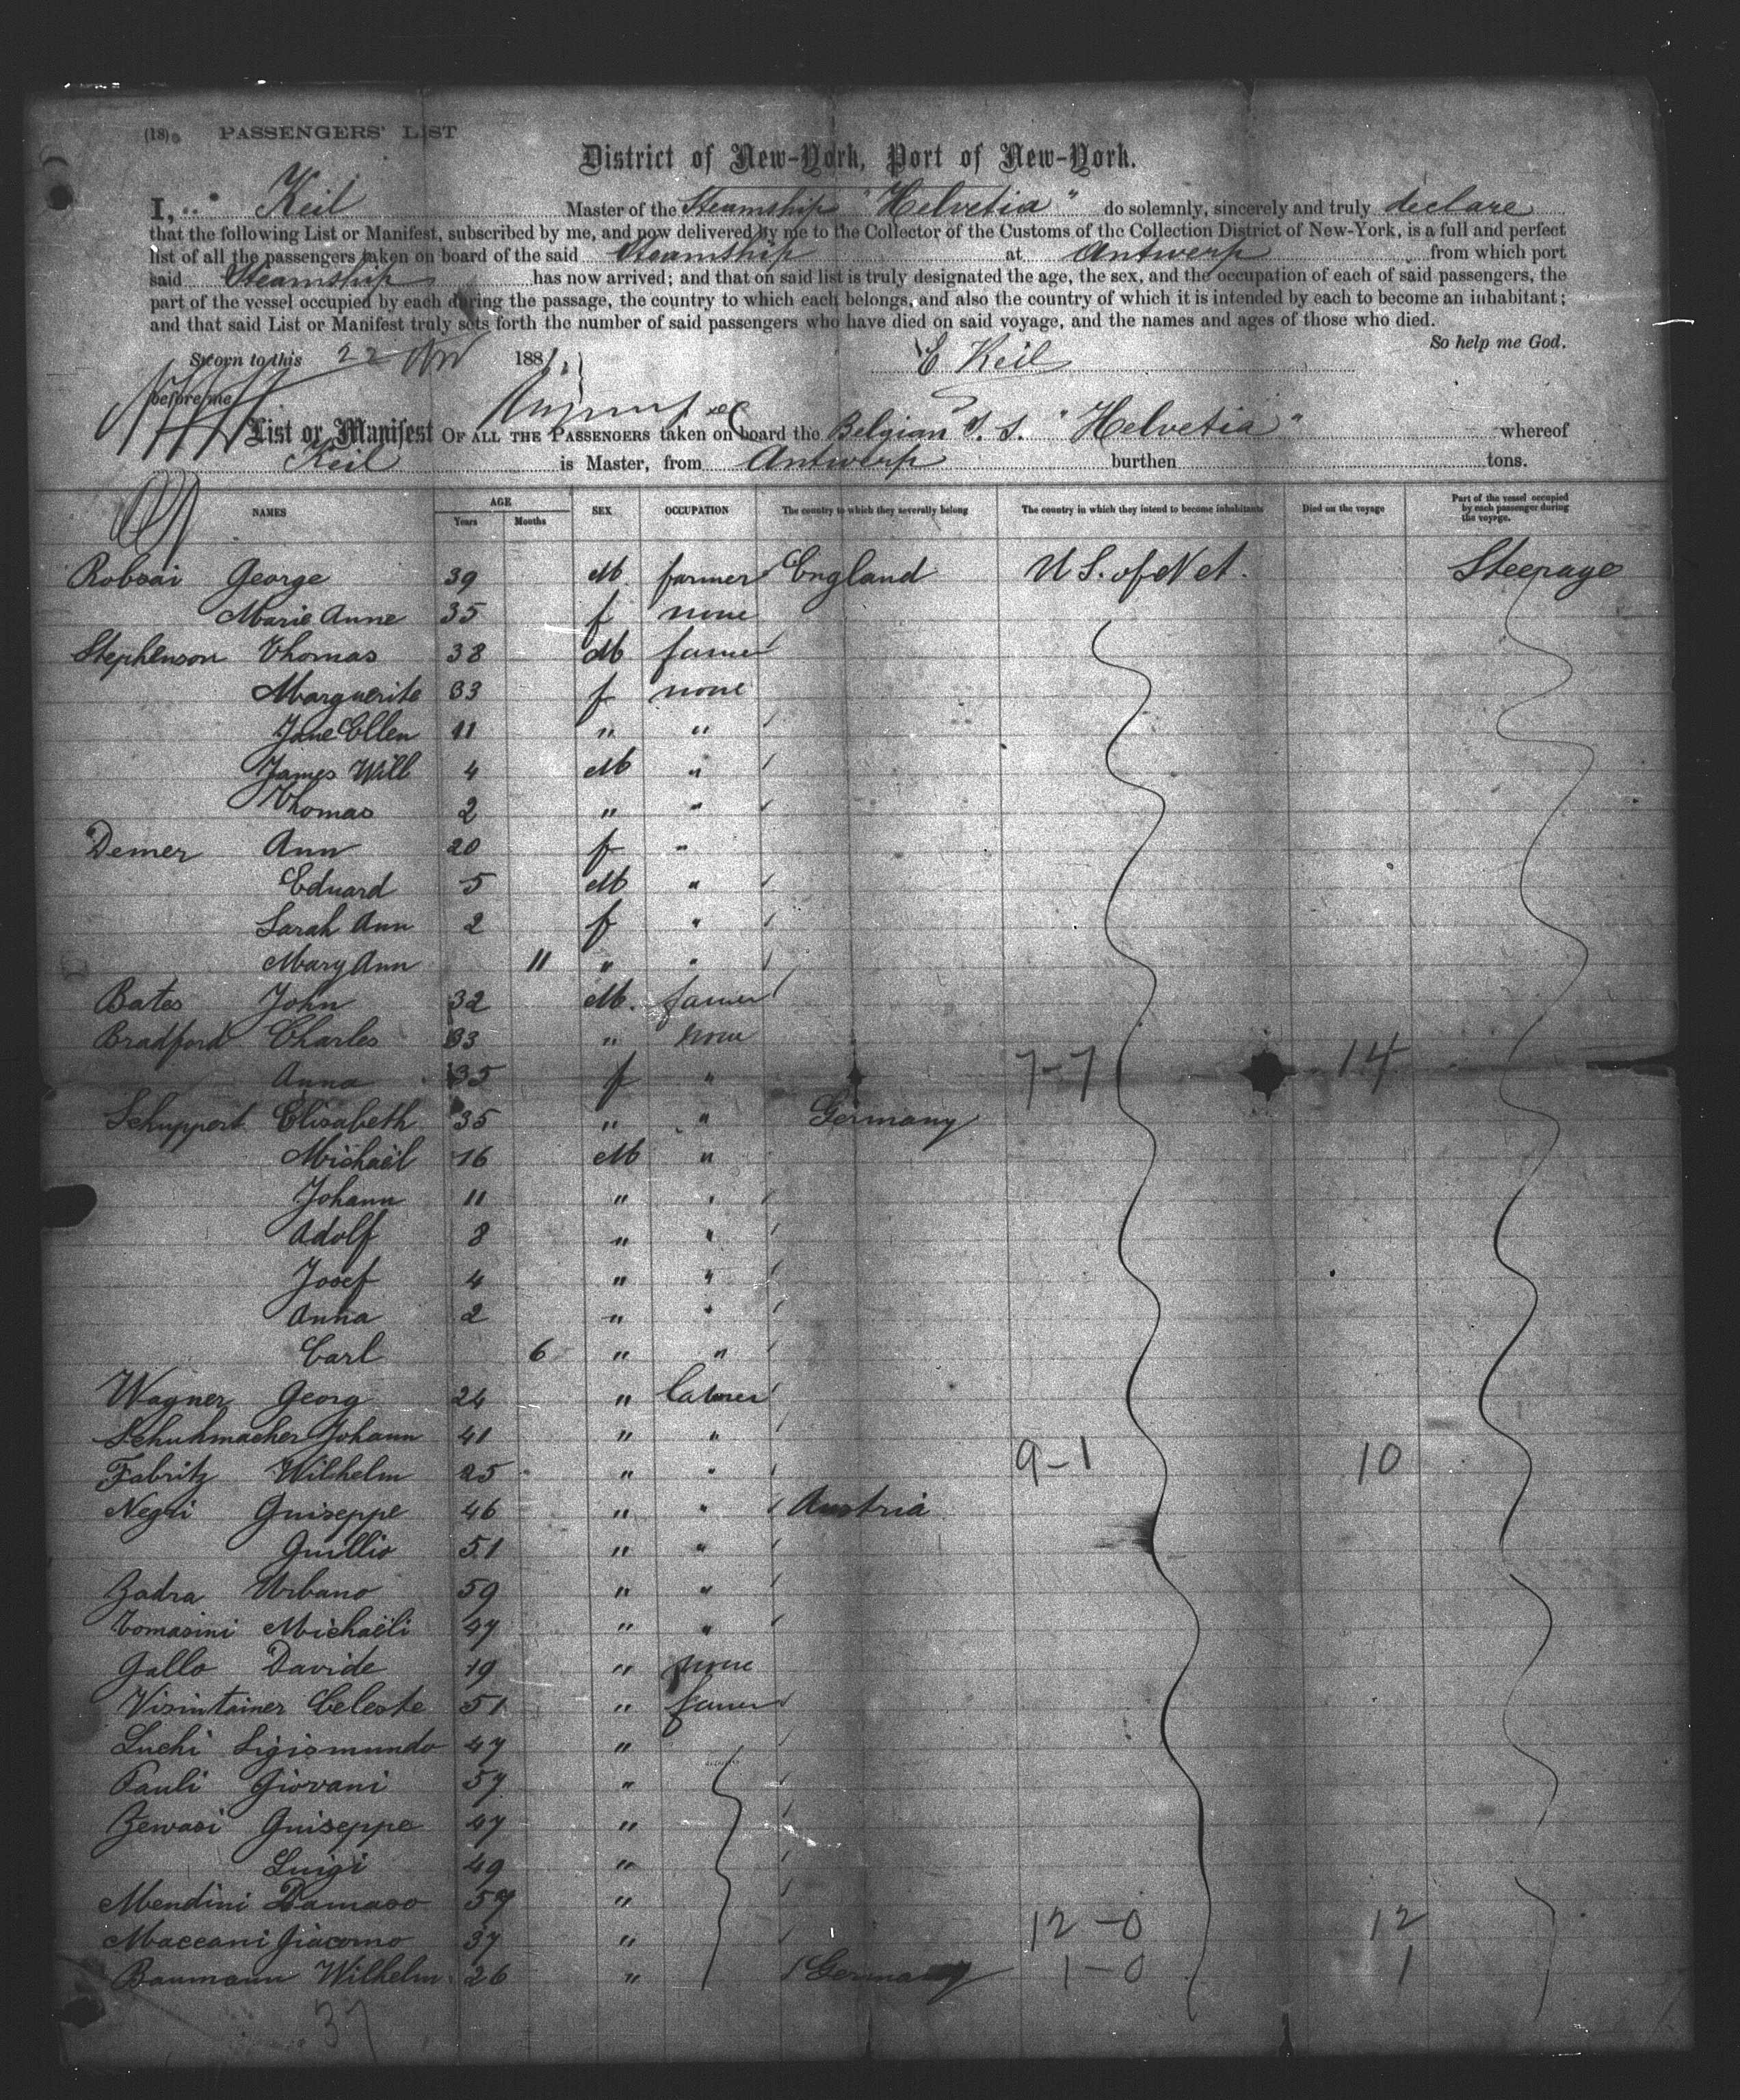 (18) PASSENGERS' LIST
District of New-York, Port of New-York.
I, Keil Master of the Steamship "Helvetia" do solemnly, sincerely and truly declare
that the following List or Manifest, subscribed by me, and now delivered by me to the Collector of the Customs of the Collection District of New-York, is a full and perfect
list of all the passengers taken on board of the said Steamship at Antwerp from which port
said Steamship has now arrived; and that on said list is truly designated the age, the sex, and the occupation of each of said passengers, the
part of the vessel occupied by each during the passage, the country to which each belongs, and also the country of which it is intended by each to become an inhabitant;
and that said List or Manifest truly sets forth the number of said passengers who have died on said voyage, and the names and ages of those who died.
So help me God.
Sworn to this 22 188
E Keil
before me
List or Manifest OF ALL THE PASSENGERS taken on board the Belgian S. S. "Helvetia" whereof
Keil is Master, from Antwerp burthen tons.
NAMES AGE Years Months SEX OCCUPATION The country to which they severally belong The country in which they intend to become inhabitants Died on the voyage Part of the vessel occupied by each passenger during the voyage.
George 39 M farmer England U S. of N A. Steerage
Marie Anne 35 f none
Stephenson Thomas 38 M farmer
Marguerite 33 f none
Jane Ellen 11 " "
James Will 4 M "
Thomas 2 " "
Demer Ann 20 f "
Eduard 5 M "
Sarah Ann 2 f "
Mary Ann 11 " "
Bates John 32 M. farmer
Bradford Charles 33 " none
Anna 35 f " 7-7 14
Schuppert Elisabeth 35 " " Germany
Michaël 16 M "
Johann 11 " "
Adolf 8 " "
Josef 4 " "
Anna 2 " "
Carl 6 " "
Wagner Georg 24 " laborer
Schuhmacher Johann 41 " "
Fabritz Wilhelm 25 " " 9-1 10
Negri Guiseppe 46 " " Austria
Guillio 51 " "
Zadra Urbano 59 " "
Tomasini Michaëli 47 " "
Gallo Davide 19 " none
Visintainer Celeste 51 " farmer
Luchi Sigismundo 47 "
Pauli Giovani 57 "
Guiseppe 47 "
Luigi 49 "
Mendini Damaso 57 "
Maccani Giacomo 37 " 12-0 12
Baumann Wilhelm 26 " Germany 1-0 1
37